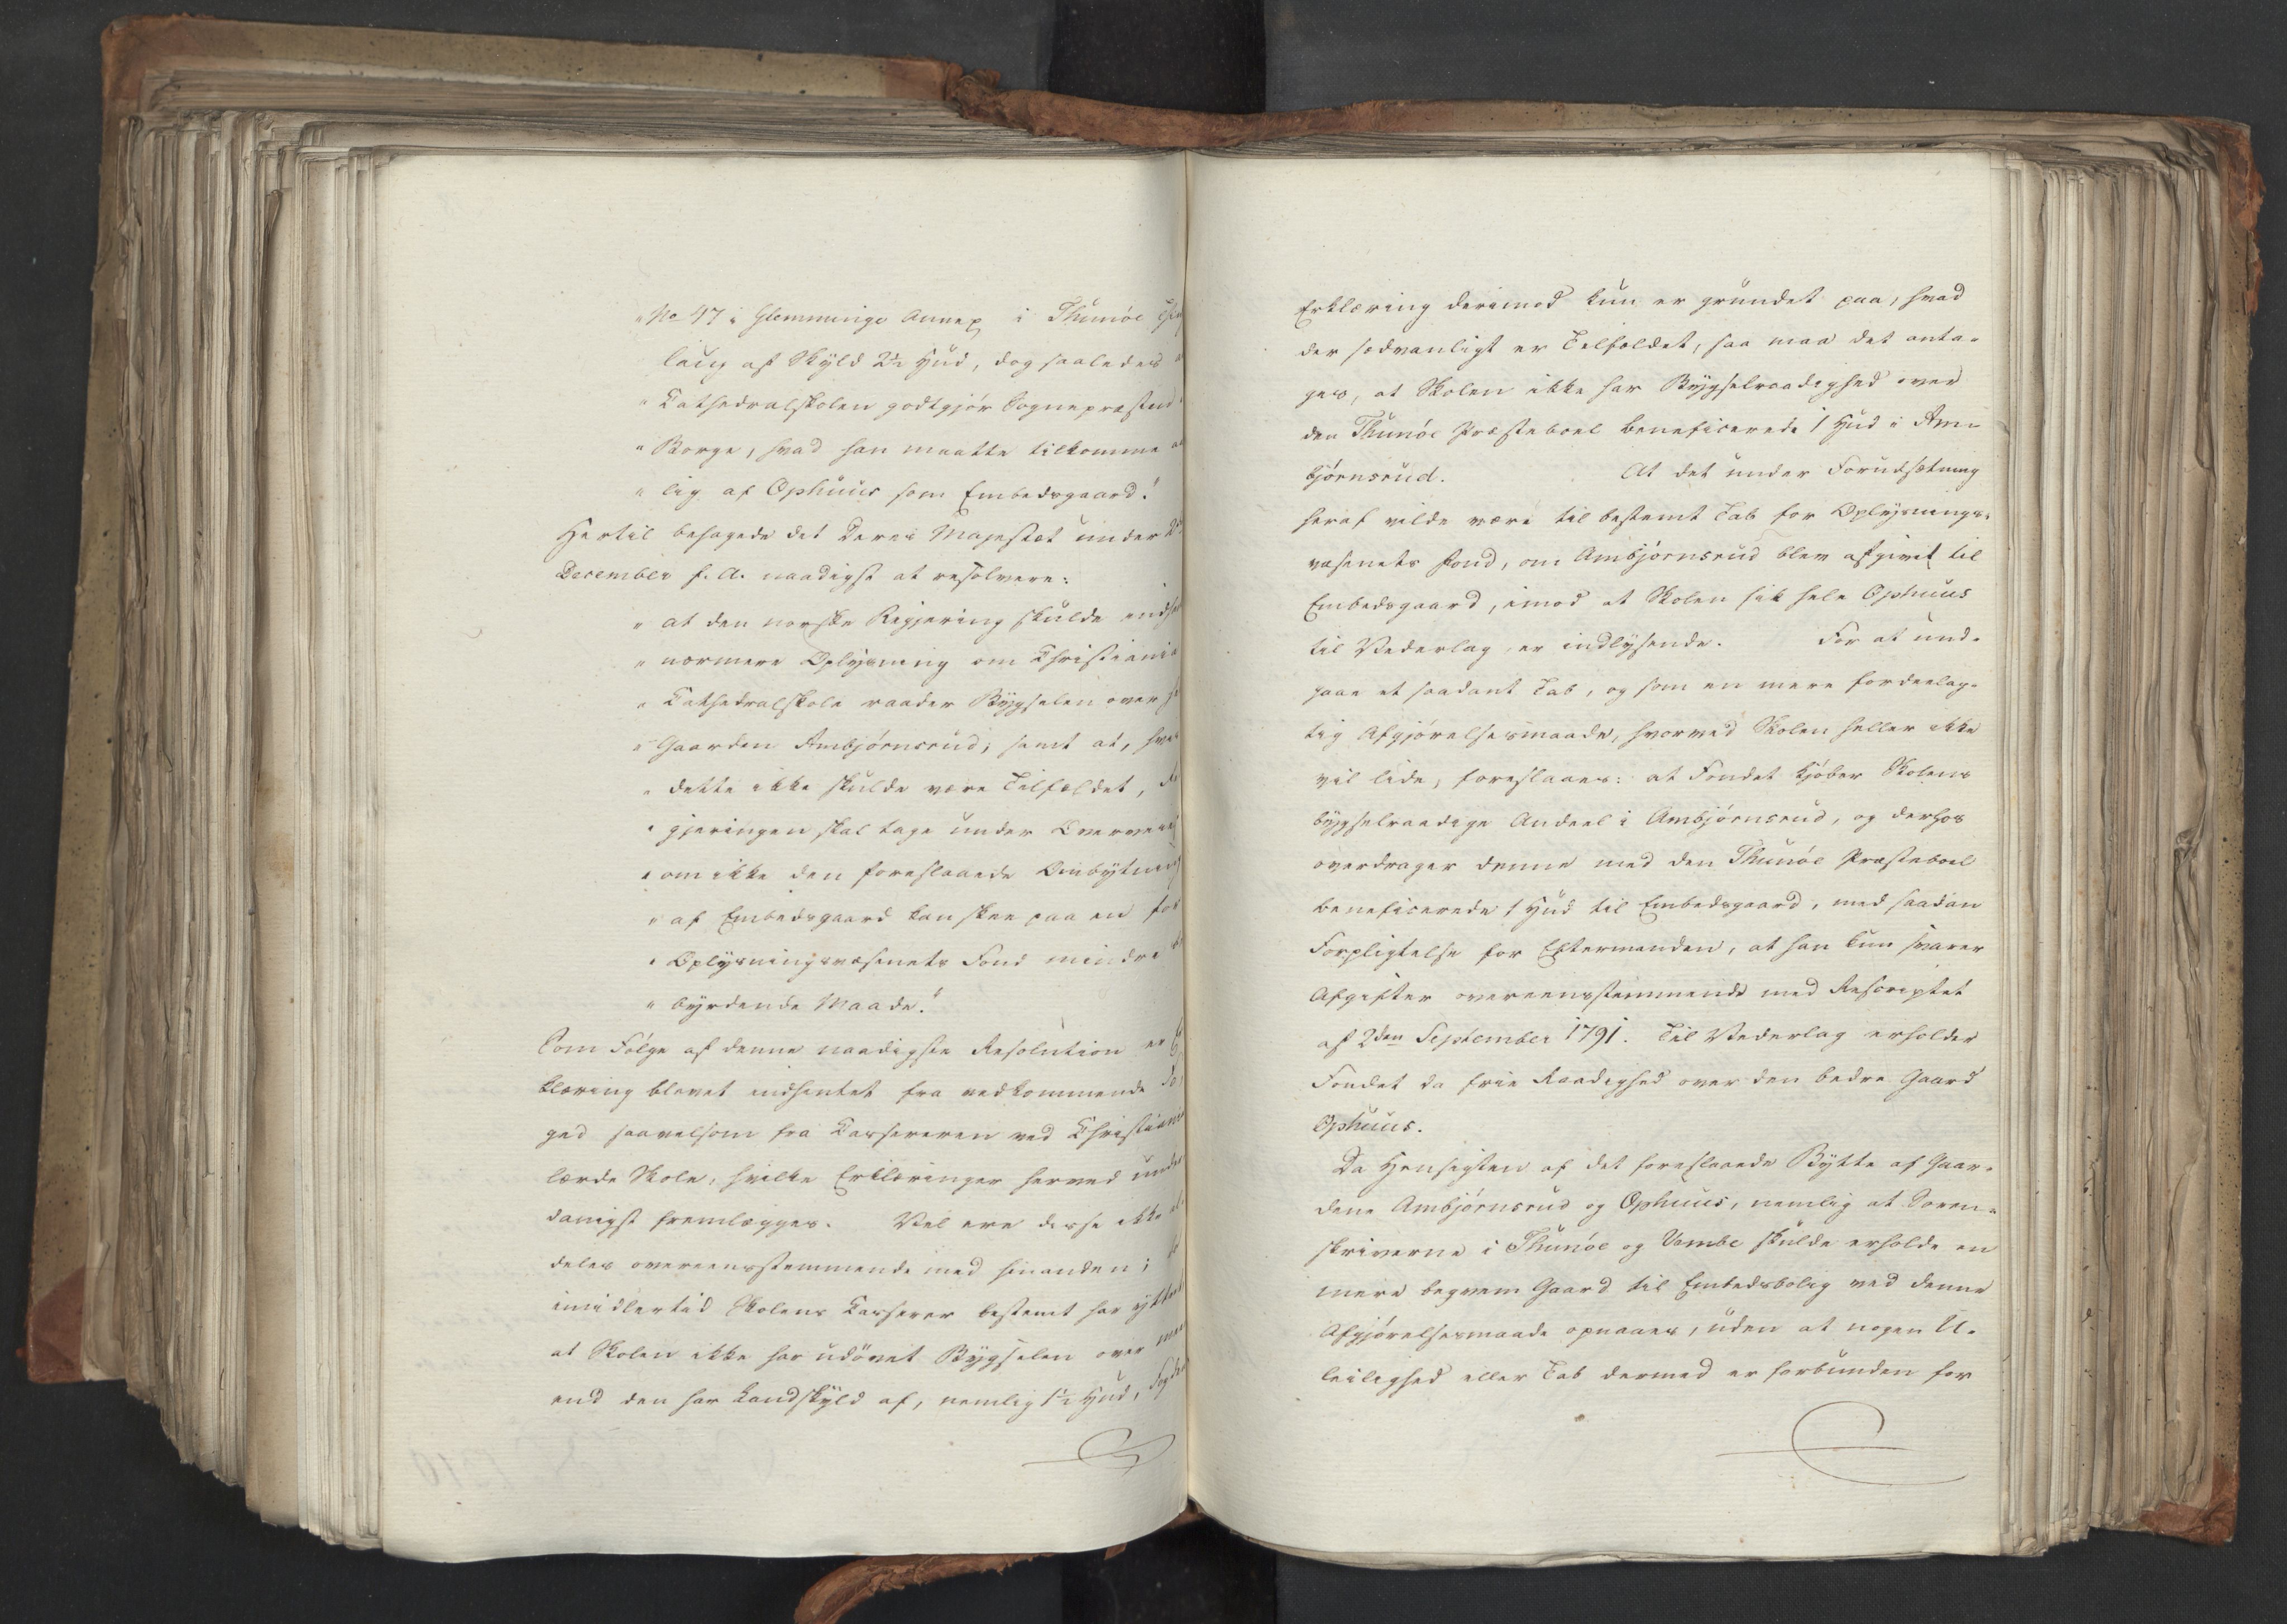 "No 47 i Glemminge Annex i Thunöe
laug af Skyld 2½ Hud, dog saaledes
" Cathedralskolen godtgjör Sognepresten
" Borge, hvad han maatte tilkomme
" lig af Ophuus som Embedsgaard."
Hertil behagede det Deres Majestæt under
December f. A. naadigst at resolvere:
" at den norske Regjering skulde
" nærmere Oplysning om Christiania
" Cathedralskole raader Bygselen over
" Gaarden Ambjörnsrud, samt at,
" dette ikke skulde være Tilfældet,
" gjeringen skal tage under
" om ikke den foreslaaede Ombytning
" af Embedsgaard kan skee paa en for
" Oplysningsvæsenets Fond mindre
" byrdende Maade."
Som Fölge af denne naadigste Resolution er
klæring blevet indhentet fra vedkommende
ged saavelsom fra Kassereren ved Christiania
lærde Skole, hvilke Erklæringer herved under
danigst fremlægges. Vel ere disse ikke
deles overeensstemmende med hinanden;
imidlertid Skolens Kasserer bestemt har yttret
at Skolen ikke har udövet Bygselen over meer
end den har Landskyld af, nemlig 1½ Hud,
Erklæring derimod kun er grundet paa, hvad
der sædvanligt er Tilfældet, saa maa det anta-
ges, at Skolen ikke har Bygselraadighed over
den Thunöe Præsteboel beneficerede 1 Hud i Am-
björnsrud. At det under Forudsætning
heraf vilde være til bestemt Tab for Oplysnings-
væsenets Fond, om Ambjörnsrud blev afgivet til
Embedsgaard, imod at Skolen fik hele Ophuus
til Vederlag, er indlysende. For at und-
gaae et saadant Tab, og som en mere fordeelag-
tig Afgjörelsesmaade, hvorved Skolen heller ikke
vil lide, foreslaaes: at Fondet kjöber Skolens
bygselraadige Andeel i Ambjörnsrud, og derhos
overdrager denne med den Thunöe Præsteboel
beneficerede 1 Hud til Embedsgaard, med saadan
Forpligtelse for Eftermanden, at han kun svarer
Afgifter overeensstemmende med Rescriptet
af 2den September 1791. Til Vederlag erholder
Fondet da frie Raadighed over den bedre Gaard
Ophuus.
Da Hensigten af det foreslaaede Bytte af Gaar-
dene Ambjörnsrud og Ophuus, nemlig at Soren-
skriverne i Thunöe og Vembe skulde erholde en
mere beqvem Gaard til Embedsbolig ved denne
Afgjörelsesmaade opnaaes, uden at nogen U-
leilighed eller Tab dermed er forbunden for